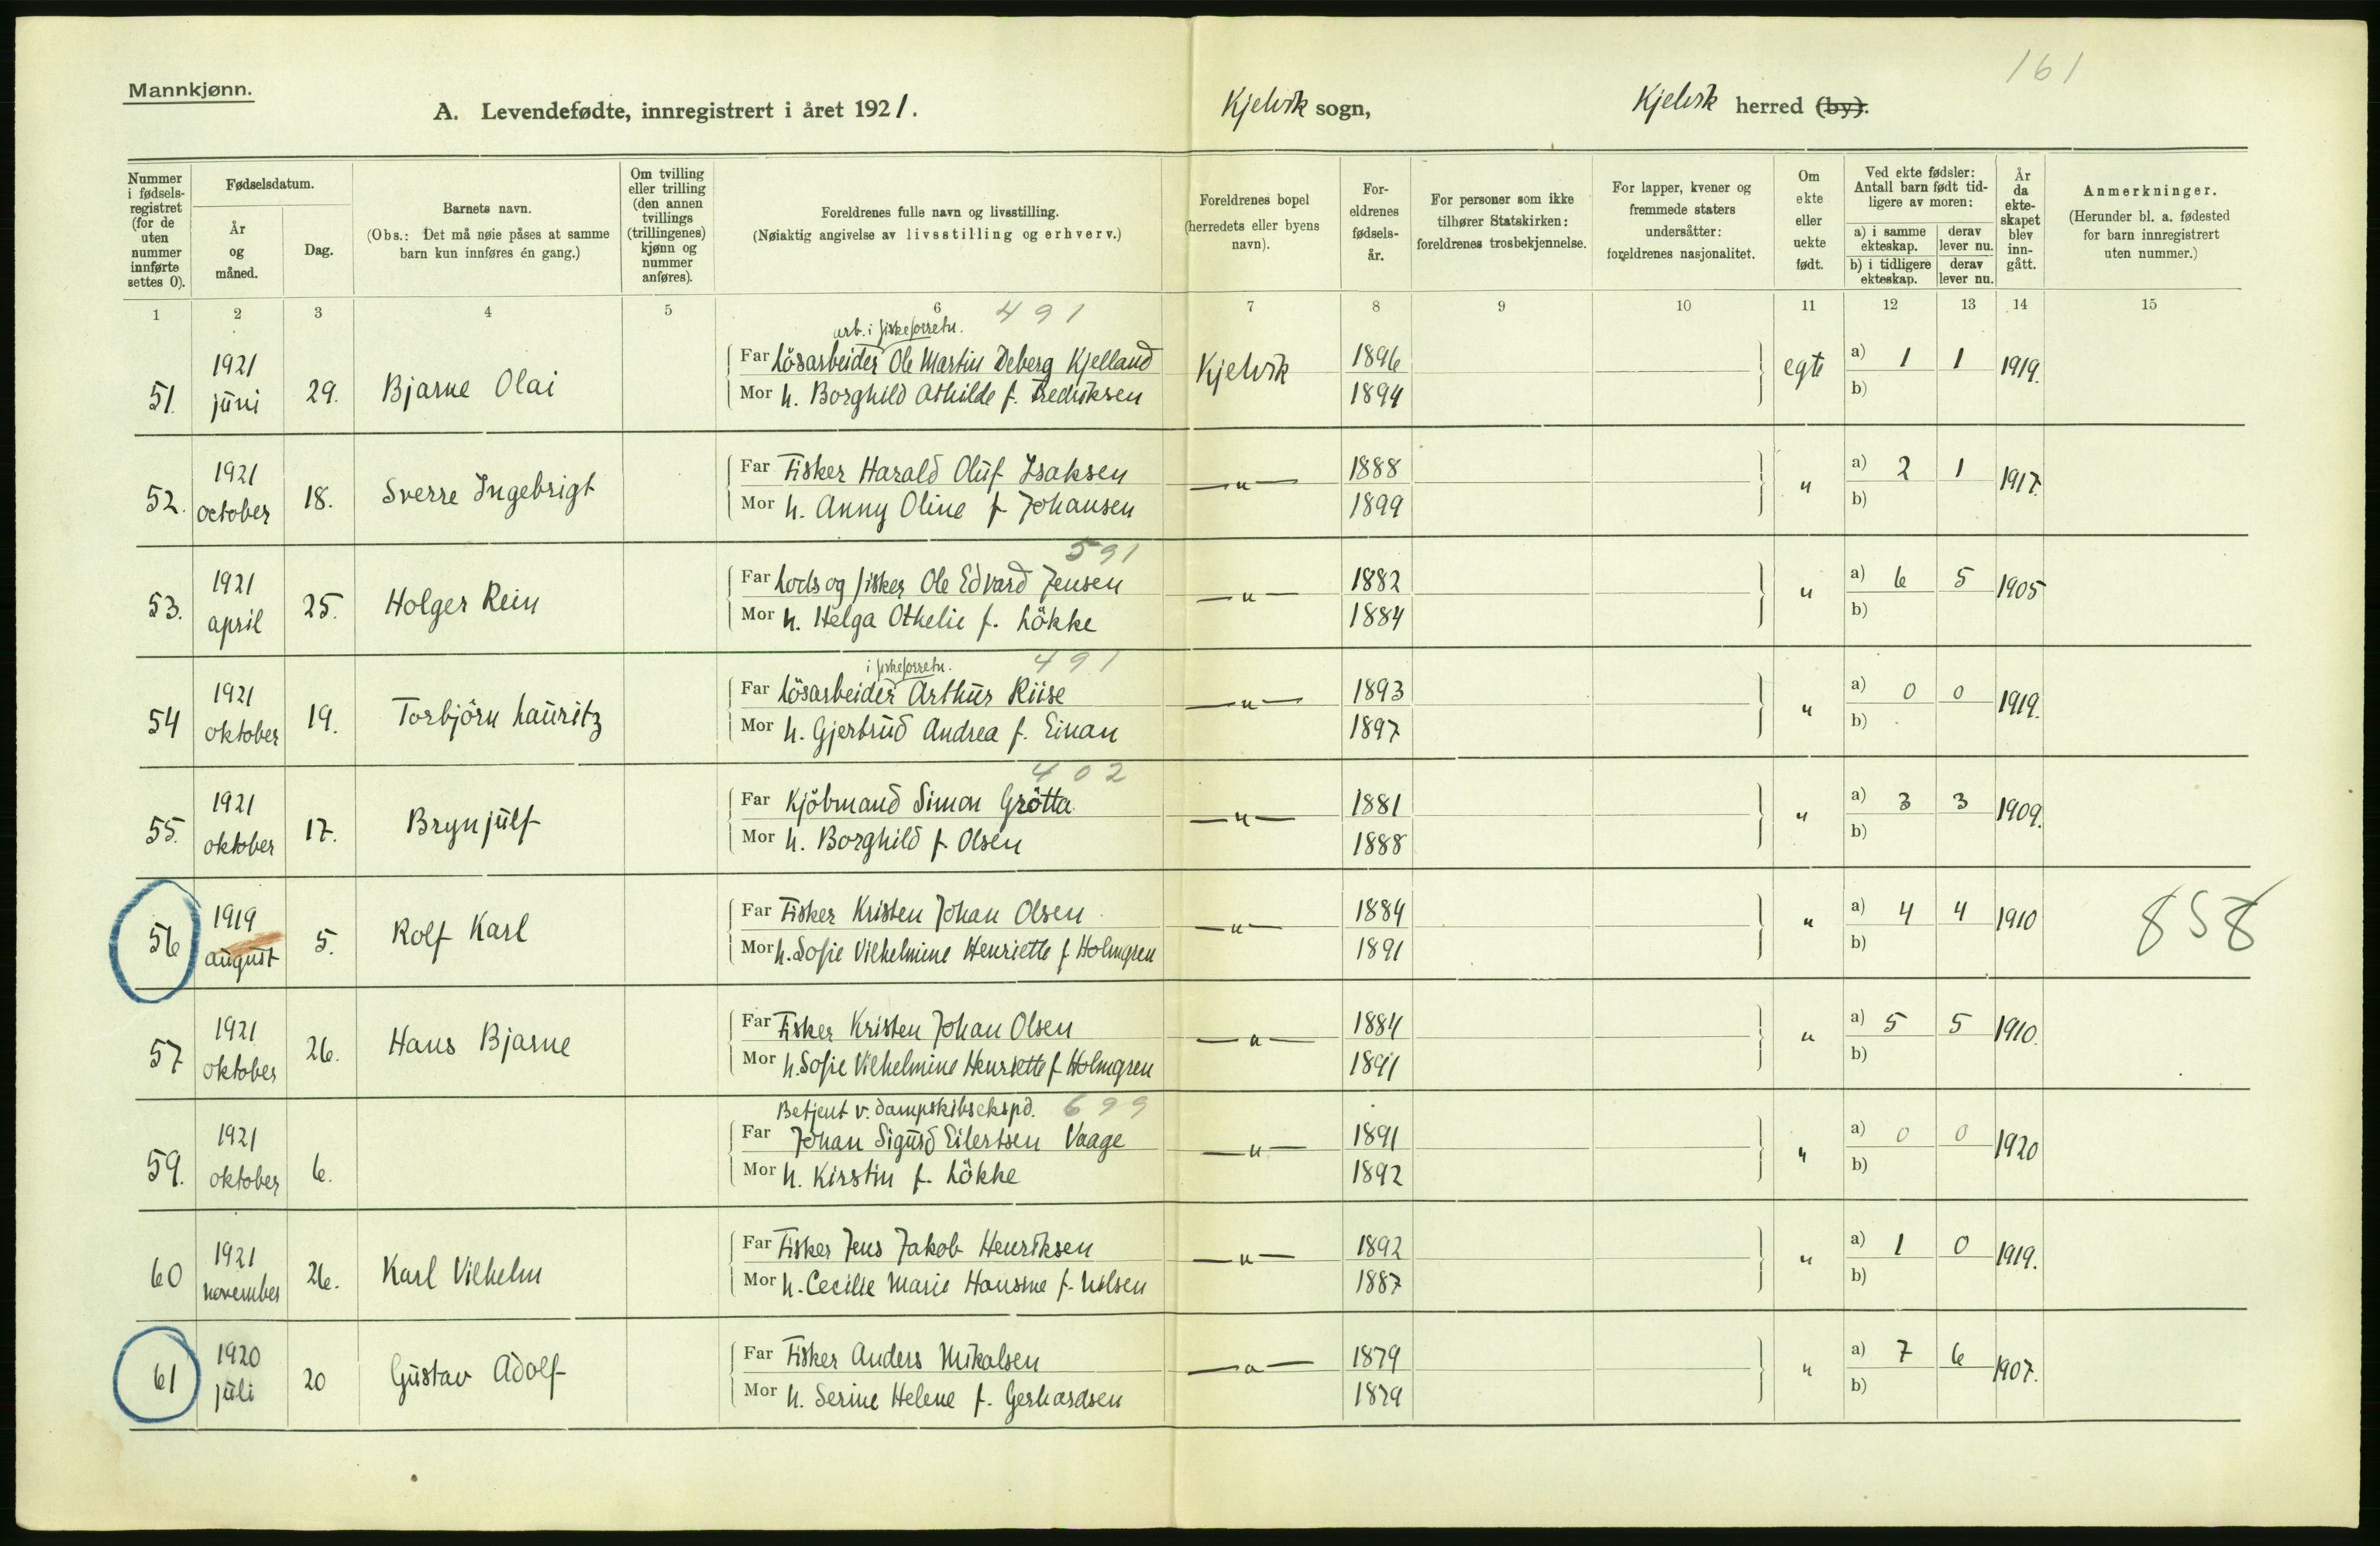 161
Mannkjønn.
A. Levendefødte, innregistrert i året 1921. Kjelvik sogn, Kjelvik herred (by).
Nummer i fødsels-registret (for de uten nummer innførte settes 0).
Fødselsdatum.
År og måned.
Dag.
Barnets navn.
(Obs.: Det må nøie påses at samme barn kun innføres én gang.)
Om tvilling eller trilling (den annen tvillings (trillingenes) kjønn og nummer anføres).
Foreldrenes fulle navn og livsstilling.
(Nøiaktig angivelse av livsstilling og erhverv.)
Foreldrenes bopel (herredets eller byens navn).
For-eldrenes fødsels-år.
For personer som ikke tilhører Statskirken: foreldrenes trosbekjennelse.
For lapper, kvener og fremmede staters undersåtter: foreldrenes nasjonalitet.
Om ekte eller uekte født.
Ved ekte fødsler: Antall barn født tid-ligere av moren:
a) i samme ekteskap. derav lever nu.
b) i tidligere ekteskap. derav lever nu.
År da ekte-skapet blev inn-gått.
Anmerkninger.
(Herunder bl. a. fødested for barn innregistrert uten nummer.)
1 2 3 4 5 6 7 8 9 10 11 12 13 14 15
arb. i fiskeforretn. 491
51. 1921 juni 29. Bjarne Olai Far Lösarbeider Ole Martin Deberg Kjelland Kjelvik 1896 egte a) 1 1 1919.
Mor h. Borghild Athilde f. Fredriksen 1894 b)
52. 1921 october 18. Sverre Ingebrigt Far Fisker Harald Oluf Isaksen —"— 1888 " a) 2 1 1917.
Mor h. Anny Oline f. Johansen 1899 b)
591
53. 1921 april 25. Holger Rein Far Lods og fisker Ole Edvard Jensen —"— 1882 " a) 6 5 1905
Mor h. Helga Othelie f. Lökke 1884 b)
i fiskeforretn. 491
54 1921 oktober 19. Torbjörn Lauritz Far Lösarbeider Arthur Riise —"— 1893 " a) 0 0 1919.
Mor h. Gjertrud Andrea f. Einan 1897 b)
402
55. 1921 oktober 17. Brynjulf Far Kjöbmand Simon Grötta —"— 1881 " a) 3 3 1909.
Mor h. Borghild f. Olsen 1888 b)
56 1919 august 5. Rolf Karl Far Fisker Kristen Johan Olsen —"— 1884 " a) 4 4 1910 858
Mor h. Sofie Vilhelmine Henriette f Holmgren 1891 b)
57 1921 oktober 26. Hans Bjarne Far Fisker Kristen Johan Olsen —"— 1884 " a) 5 5 1910.
Mor h. Sofie Vilhelmine Henriette f Holmgren 1891 b)
Betjent v. dampskibsekspd. 699
59. 1921 oktober 6. Far Johan Sigurd Eilertsen Vaage —"— 1891 " a) 0 0 1920
Mor h. Kirstin f. Lökke 1892 b)
60 1921 november 26. Karl Vilhelm Far Fisker Jens Jakob Henriksen —"— 1892 " a) 1 0 1919.
Mor h. Cecilie Marie Hansine f. Nilsen 1887 b)
61 1920 juli 20 Gustav Adolf Far Fisker Anders Mikalsen —"— 1879 " a) 7 6 1907.
Mor h. Serine Helene f. Gerhardsen 1879 b)